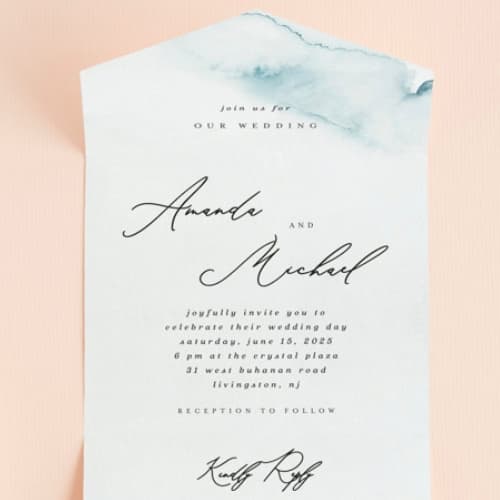 join us for
OUR WEDDING
Amanda
AND
Michael
joyfully invite you to
celebrate their wedding day
saturday, june 15, 2025
6 pm at the crystal plaza
31 west buhanan road
livingston, nj
RECEPTION TO FOLLOW
Kindly Reply